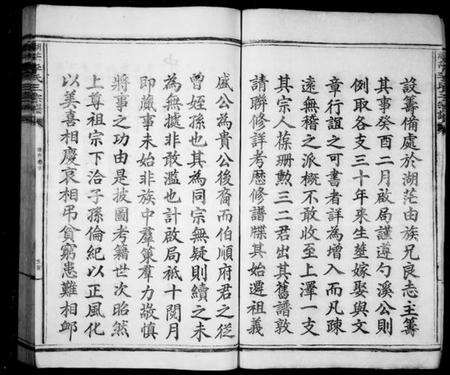 設籌備處於湖茫由族兄良志主籌
其事癸酉二月啟局謹遵勺溪公則
例取各支三十年來生塟嫁娶與文
章行誼之可書者詳為增入而凡疎
遠無稽之派概不敢收至上澤一支
其宗人葆珊勲三二君出其舊譜敦
請聯修詳考歷修譜牒其始遷祖義
盛公為貴公後裔而伯順府君之從
曾姪孫也其為同宗無疑則續之未
為無據非敢濫也計啟局祗十閱月
即蕆事未始非族中羣策羣力敬慎
將事之功由是披圖考籍世次昭然
上尊祖宗下洽子孫倫紀以正風化
以美喜相慶哀相弔貧窮患難相卹